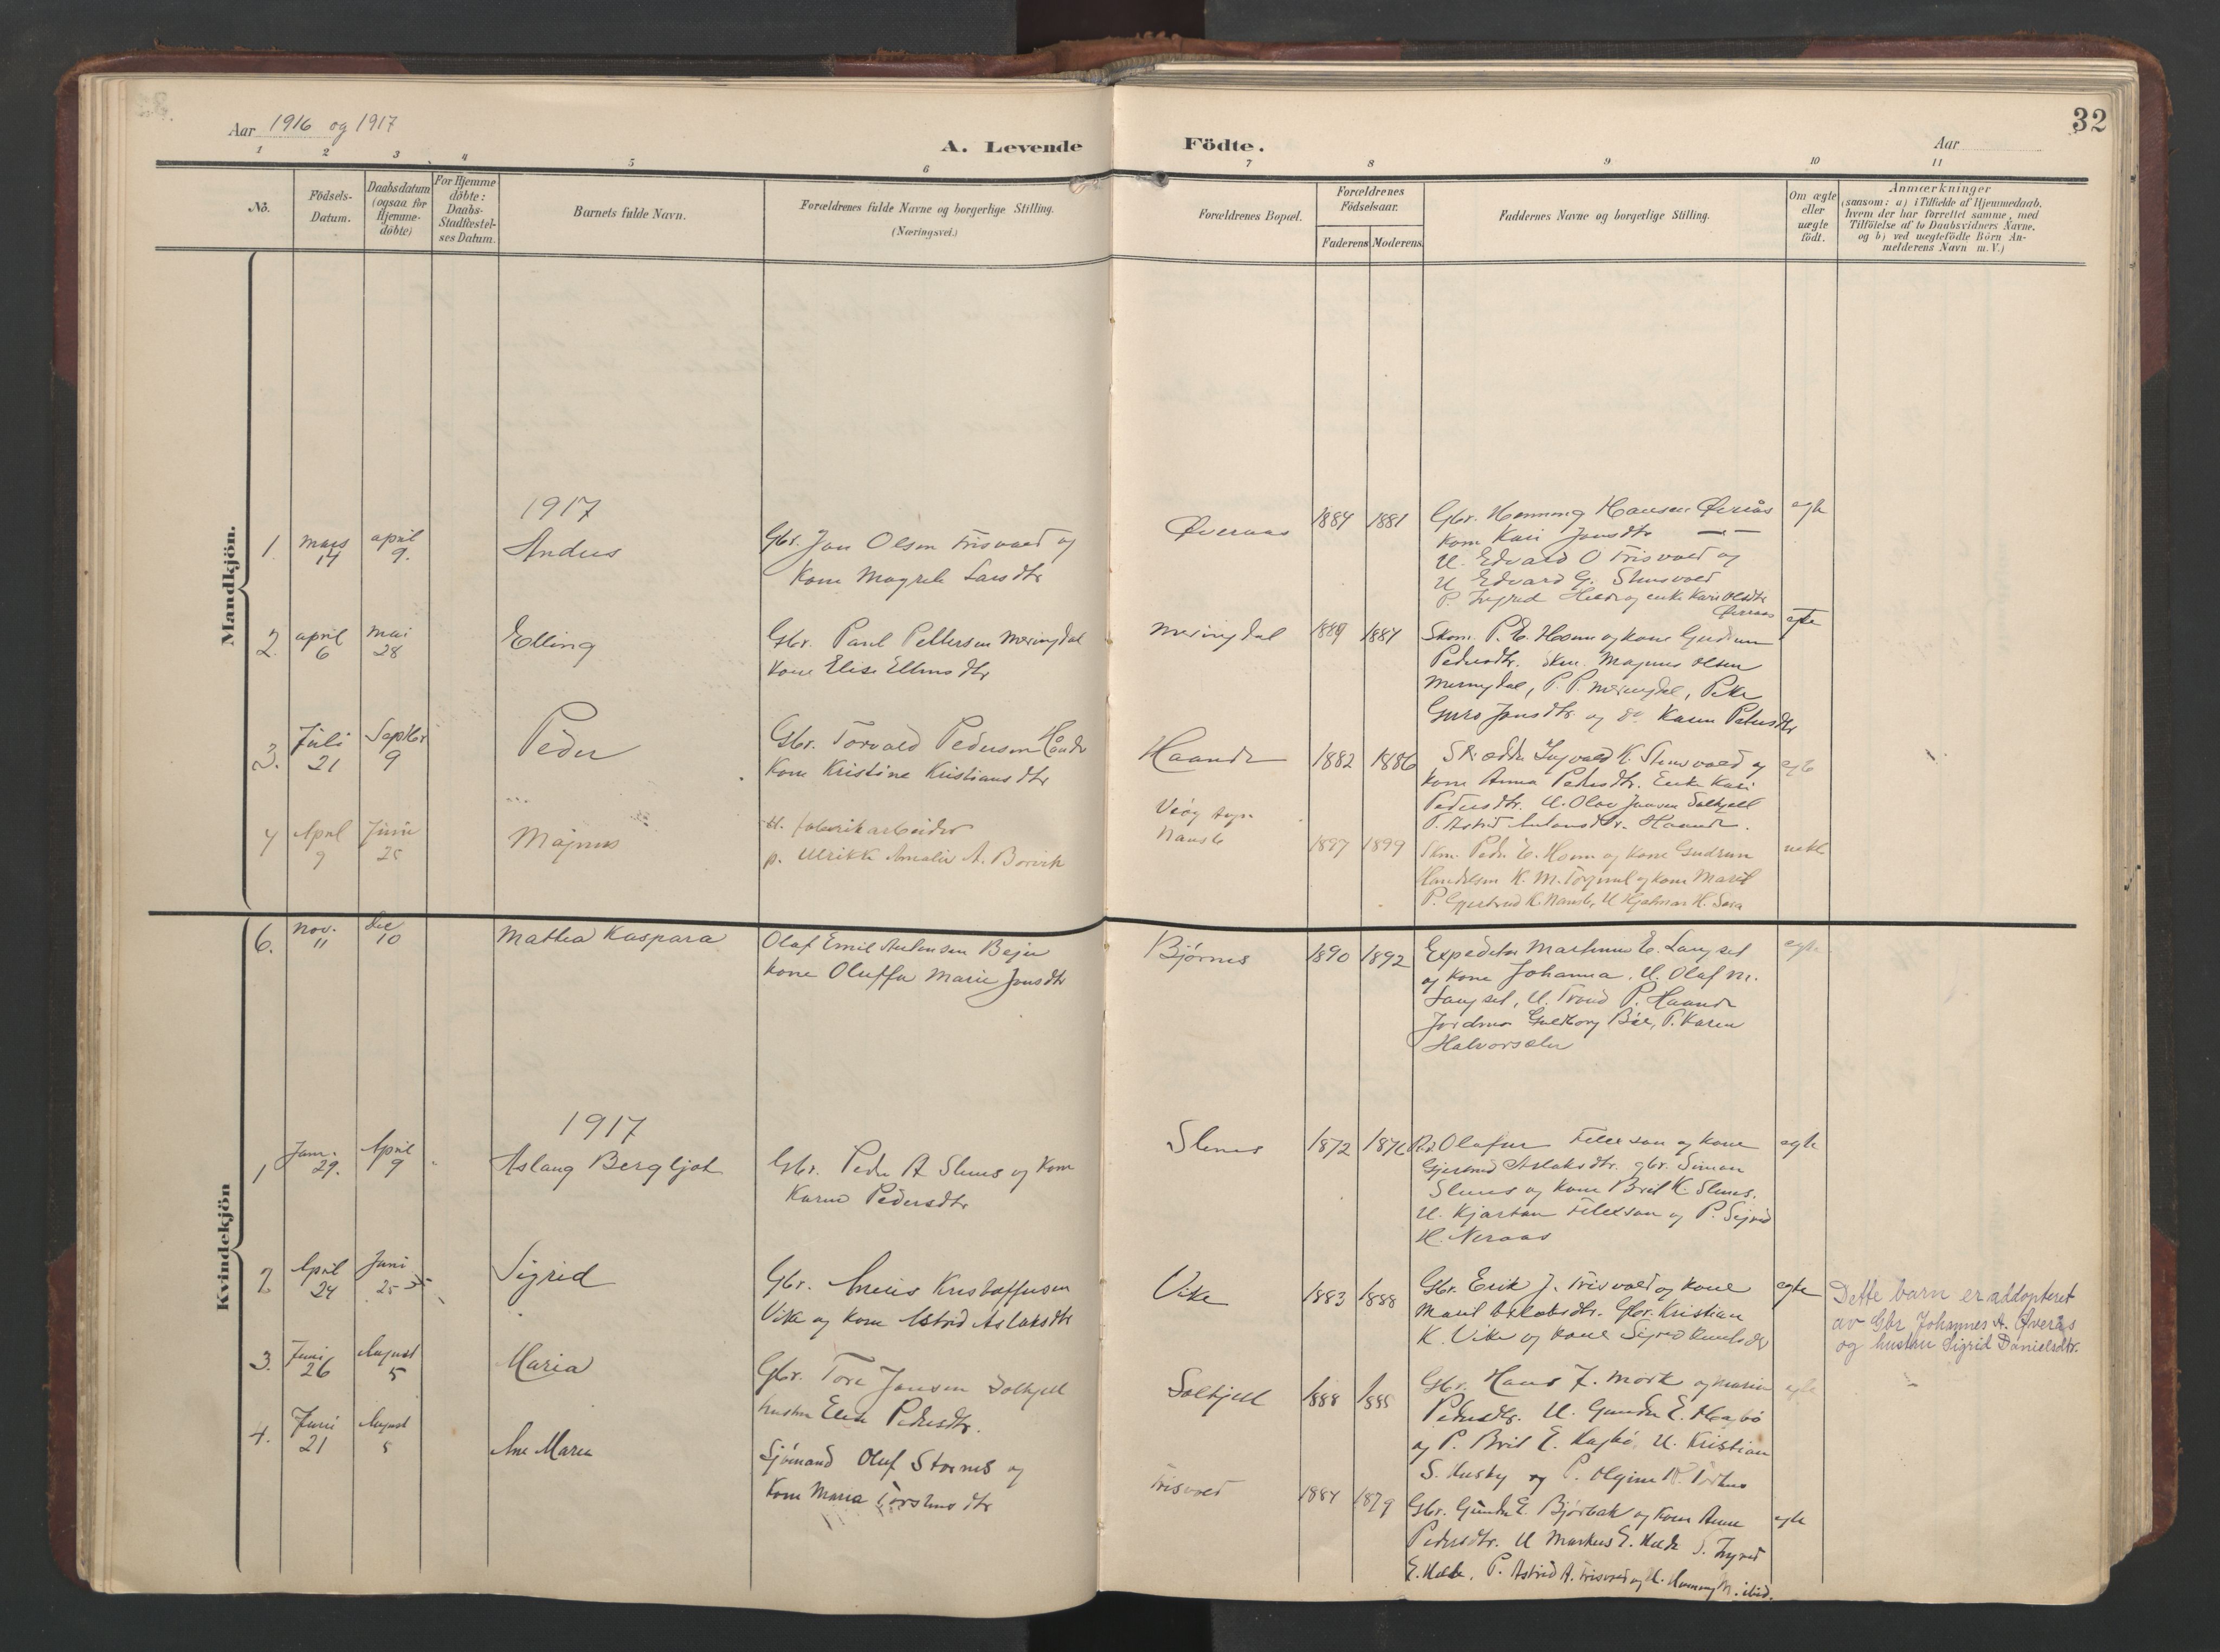 32
Aar 1916 og 1917
A. Levende Födte.
Aar
1 2 3 4 5 6 7 8 9 10 11
No.
Födsels-
Datum.
Daabsdatum
(ogsaa for
Hjemme-
döbte)
For Hjemme
döbte:
Daabs-
Stadfæstel-
ses Datum.
Barnets fulde Navn.
Forældrenes fulde Navne og borgerlige Stilling.
(Næringsvei.)
Forældrenes Bopæl.
Forældrenes
Födselsaar.
Faderens Moderens
Faddernes Navne og borgerlige Stilling.
Om ægte
eller
uægte
födt.
Anmærkninger
(saasom: a) i Tilfælde af Hjemmedaab,
hvem der har forrettet samme, med
Tilföielse af to Daabsvidners Navne,
og b) ved uægtefödte Börn An-
melderens Navn m. V.)
Mandkjön.
1917
1. mars 14 april 9. Anders
Gbr. Jon Olsen Trisvold og
Kone Magrete Larsdtr
Øveraas 1884 1881
Gbr. Henning Hansen Øveraas
Kone Kari Jonsdtr — —
U. Edvard O Trisvold og
U Edvard G. Stensvold
P. Ingrid og enke Kari Olsdtr
Øveraas
egte
2. april 6 mai 28 Elling
Gbr. Paul Pettersen Meringdal
Kone Elise Ellingsdtr
Meringdal 1889 1887
Skom. P. E. Hovem og kone Gudrun
Pedersdtr. Skm. Magnus Olsen
Meringdal, P. P. Meringdal, Pike
Guro Jonsdtr og do Karen Petersdtr
egte
3. Juli 21 Septbr 9 Peder
Gbr. Torvald Pedersen Haande
Kone Kristine Kristiansdtr
Haande 1882 1886
Skrædder Ingvald K. Stensvold og
kone Anna Pedersdtr. Enke Kari
Pedersdtr. U. Olav Jansen Solhjell
P. Astrid Antonsdtr. Haande.
egte
4 April 9 Juni 25 Magnus
U. fabrikarbeider
p. Ulrikke Amalie A. Borvik
Veøy sogn
Nanste
1897 1899
Skm. Peder E. Hovem og kone Gudrun
Handelsm K. M. og kone Marit
P. Gjertrud K. Nanste, U Hjalmar H.
uekte
Kvindekjön
6. Nov. 11 Dec 10 Mathea Kaspara
Olaf Emil Antonsen Bejer
kone Oluffa Marie Jonsdtr
Bjørnes 1890 1892
Expeditør Martinus E. Langset
og kone Johanna. U. Olaf M.
Langset, U. Trond P. Haande
Jordmor Guldborg Bøe, P. Karen
Halvorsdtr
egte
1917
1 Janr. 29. April 9 Aslaug Bergljot
Gbr. Peder A Slenes og Kone
Karen Pedersdtr
Slenes 1872 1876
Olafur Felixson og kone
Gjertrud Aslaksdtr. gbr. Simon
Slenes og kone Brit K. Slenes.
U. Kjartan Felixson og P. Sigrid
H. Neraas
egte
2 April 24 Juni 25 Sigrid
Gbr. Kristoffersen
Vike og kone Astrid Aslaksdtr
Vike 1883 1888
Gbr. Erik J. Trisvold og kone
Marit Aslaksdtr. Gbr. Kristian
K. Vike og kone Sigrid Knutsdtr
egte
Dette barn er addopteret
av Gbr Johannes A. Øveraas
og hustru Sigrid Danielsdtr.
3. Juni 26 August 5 Maria
Gbr. Tore Jonsen Solhjell
hustru Elise Pedersdtr.
Solhjell 1888 1888
Gbr. Hans J. Mork og Marie
Pedersdtr. U. Gunder E. Hagbø
og P. Brit E. Hagbø, U. Kristian
S. Husby og P. Olgine
egte
4. Juni 21 August 5 Ane Marie
Sjömand Oluf Stornes og
kone Maria Torstensdtr
Trisvold 1884 1879
Gbr. Gunder E. Bjørbak og kone Anne
Pedersdtr. U Markus E. Helde S. Ingrid
E. Helde, P. Astrid A. Trisvold og U. Henning M. ibid.
egte